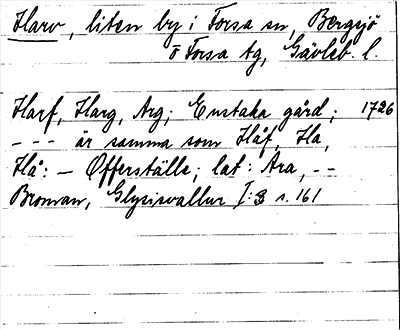 Harv, liten by i Forsa sn, Bergsjö
o Forsa tg, Gävleb. l.
Harf, Harg, Arg; Enstaka gård; 1726
- - - är samma som Håf, Ha,
Hå: - Offerställe; lat: Ara, - -
Broman, Glysisvallur I:3 s. 161